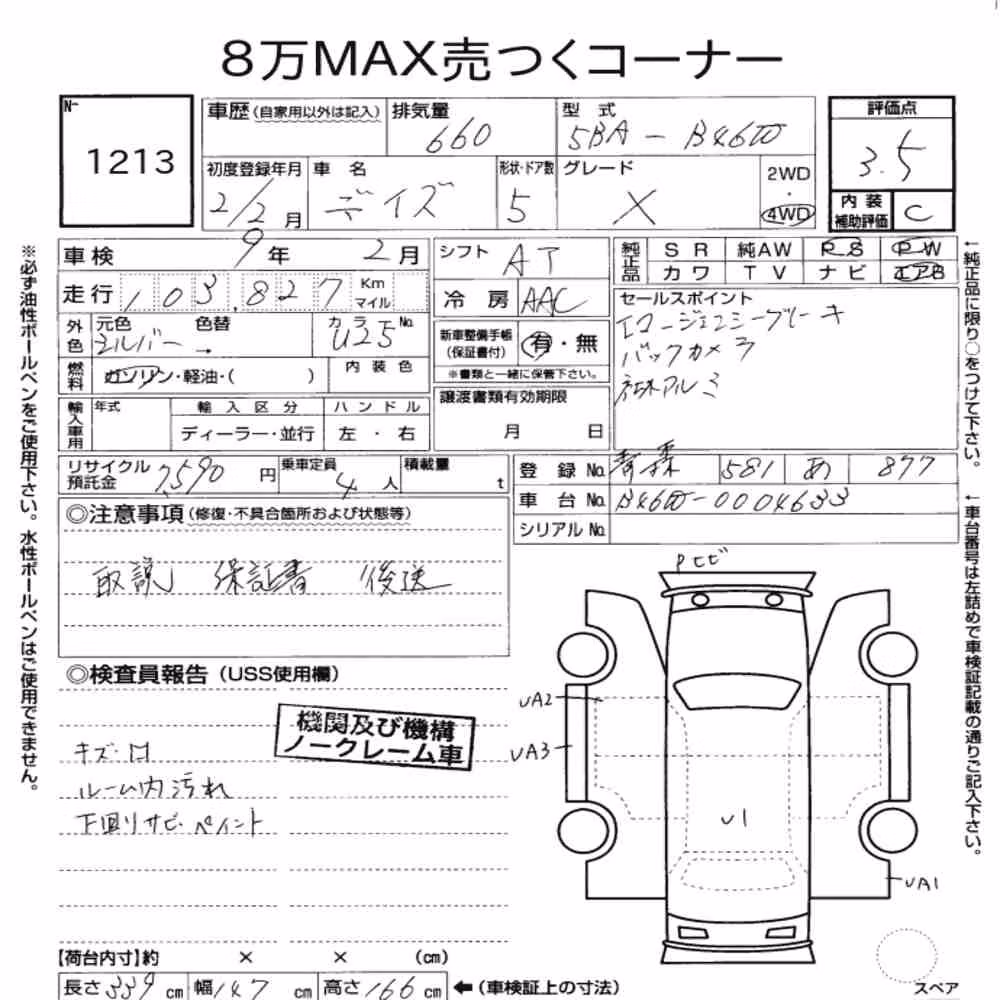 8万MAX売つくコーナー
N-
1213
車歴(自家用以外は記入)
排気量
660
型 式
5BA-B46W
評価点
3.5
初度登録年月
2/2月
車 名
デイズ
形状・ドア数
5
グレード
X
2WD
・
4WD
内 装
補助評価
C
車検 9年 2月
シフト AT
純正品
SR 純AW PS PW
カワ TV ナビ エアB
走行 103,827 Km
マイル
冷 房 AAC
セールスポイント
エマージェンシーブレーキ
バックカメラ
社外アルミ
外色
元色 色替
シルバー →
カラーNo.
U25
新車整備手帳
(保証書付)
有・無
※書類と一緒に保管下さい。
燃料
ガソリン・軽油・( )
内 装 色
輸入車用
年式
輸 入 区 分
ハ ン ド ル
ディーラー・並行
左 ・ 右
譲渡書類有効期限
月 日
リサイクル
預託金
7,590 円
乗車定員
4人
積載量
t
登 録 No. 青森 581 あ 877
車 台 No. B46W-0004633
シリアル No.
◎注意事項(修復・不具合箇所および状態等)
取説 保証書 後送
◎検査員報告(USS使用欄)
機関及び機構
ノークレーム車
キズ・凹
ルーム内汚れ
下回りサビ・ペイント
Pヒビ
UA2
UA3
U1
UA1
【荷台内寸】約 × × (cm)
長さ 339 cm 幅 147 cm 高さ 166 cm ←(車検証上の寸法)
スペア
※必ず油性ボールペンをご使用下さい。水性ボールペンはご使用できません。
←純正品に限り○をつけて下さい。
←車台番号は左詰めで車検証記載の通りご記入下さい。